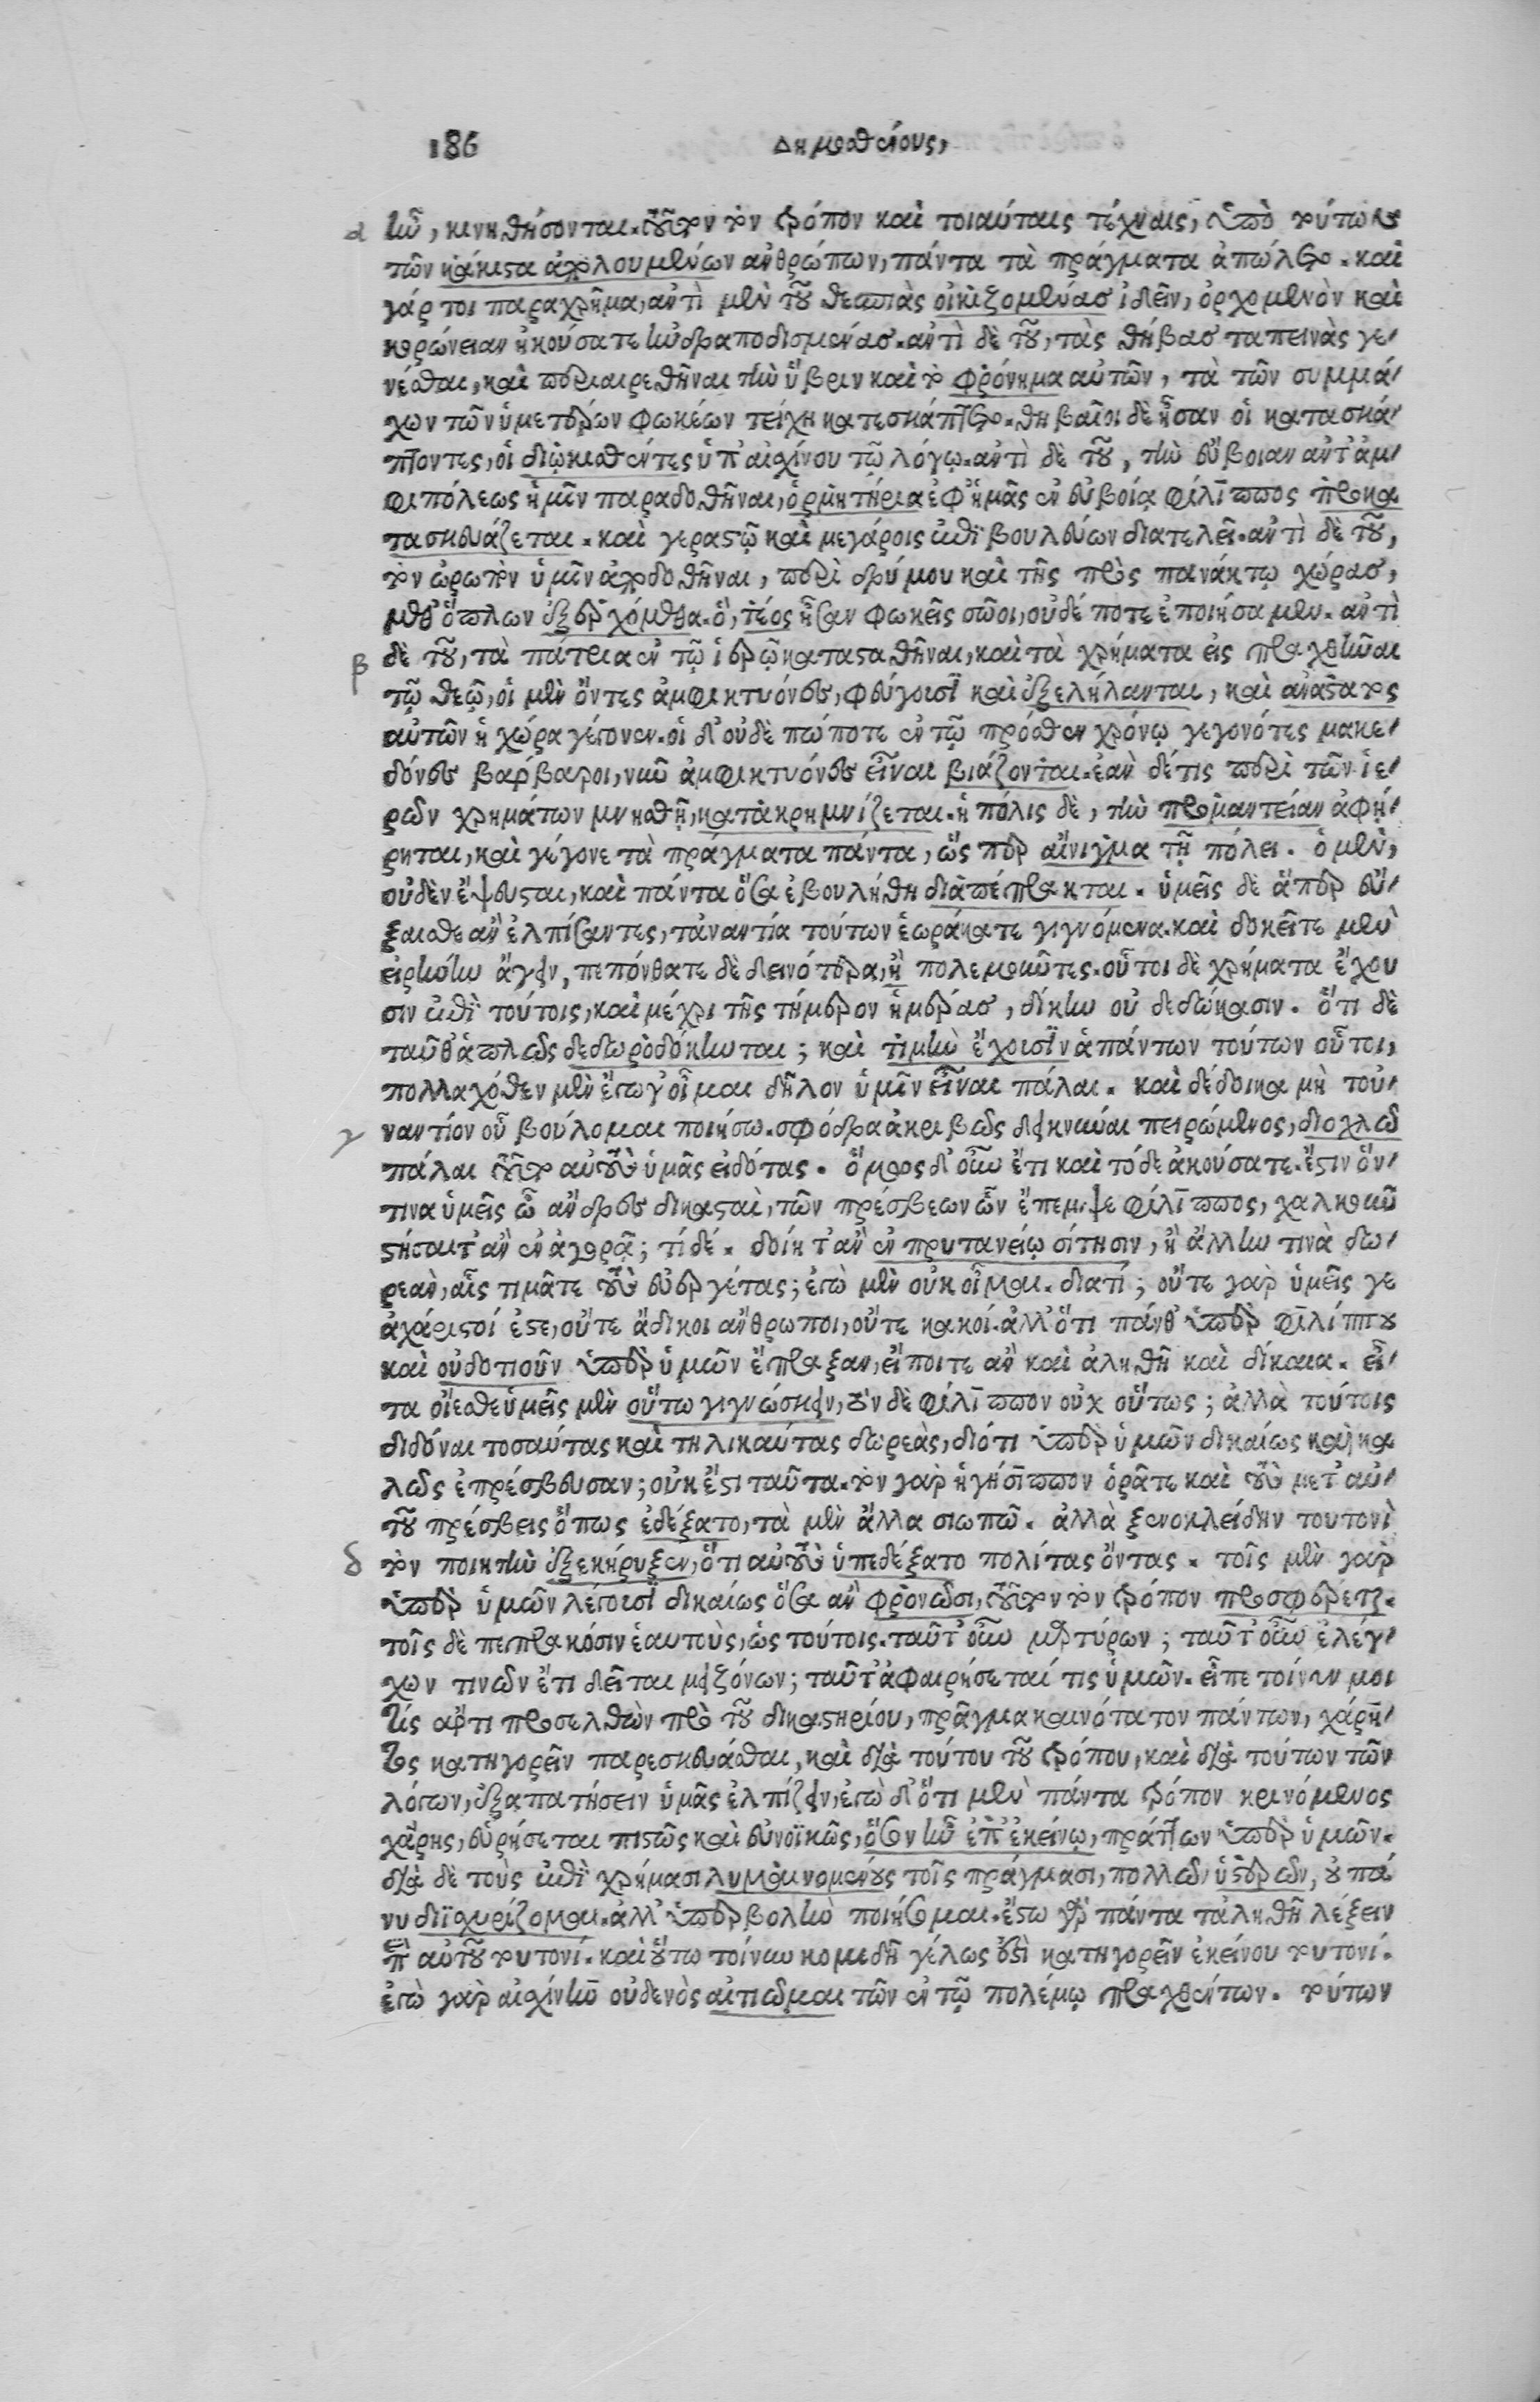 186 Δημοσθένους,
α ἦν, κινηθήσονται. τοῦτον τὸν τρόπον καὶ τοιαύταις τέχναις, ὑπὸ τούτων
τῶν κάκιστα ἀπολουμένων ἀνθρώπων, πάντα τὰ πράγματα ἀπώλετο. καὶ
γάρ τοι παραχρῆμα, ἀντὶ μὲν τοῦ θεσπιὰς οἰκιζομένας ἰδεῖν, ὀρχομενὸν καὶ
κορώνειαν ἠκούσατε ἠνδραποδισμένας. ἀντὶ δὲ τοῦ, τὰς θήβας ταπεινὰς γε-
νέσθαι, καὶ περιαιρεθῆναι τὴν ὕβριν καὶ τὸ φρόνημα αὐτῶν, τὰ τῶν συμμά-
χων τῶν ὑμετέρων φωκέων τείχη κατεσκάπτετο. θηβαῖοι δὲ ἦσαν οἱ κατασκά-
πτοντες, οἱ διῳκισθέντες ὑπ' αἰσχίνου τῷ λόγῳ. ἀντὶ δὲ τοῦ, τὴν εὔβοιαν ἀντ' ἀμ-
φιπόλεως ἡμῖν παραδοθῆναι, ὁρμητήρια ἐφ' ἡμᾶς ἐν εὐβοίᾳ φίλιππος προκα
τασκευάζεται. καὶ γεραστῷ καὶ μεγάροις ἐπιβουλεύων διατελεῖ. ἀντὶ δὲ τοῦ,
τὸν ὠρωπὸν ὑμῖν ἀποδοθῆναι, περὶ δρύμου καὶ τῆς πρὸς πανάκτῳ χώρας,
μεθ' ὅπλων ἐξερχόμεθα. ὃ, τέως ἦσαν φωκεῖς σῶοι, οὐδέ ποτε ἐποιήσαμεν. ἀντὶ
β δὲ τοῦ, τὰ πάτρια ἐν τῷ ἱερῷ κατασταθῆναι, καὶ τὰ χρήματα εἰσπραχθῆναι
τῷ θεῷ, οἱ μὲν ὄντες ἀμφικτυόνες, φεύγουσι καὶ ἐξελήλανται, καὶ ἀνάστατος
αὐτῶν ἡ χώρα γέγονεν. οἱ δ' οὐδὲ πώποτε ἐν τῷ πρόσθεν χρόνῳ γεγονότες μακε-
δόνες βάρβαροι, νῦν ἀμφικτυόνες εἶναι βιάζονται. ἐὰν δέ τις περὶ τῶν ἱε-
ρῶν χρημάτων μνησθῇ, κατακρημνίζεται. ἡ πόλις δὲ, τὴν προμαντείαν ἀφῄ-
ρηται, καὶ γέγονε τὰ πράγματα πάντα, ὥσπερ αἴνιγμα τῇ πόλει. ὁ μὲν,
οὐδὲν ἔψευσται, καὶ πάντα ὅσα ἐβουλήθη διαπέπρακται. ὑμεῖς δὲ ἅπερ εὔ-
ξαισθε ἂν ἐλπίσαντες, τἀναντία τούτων ἑωράκατε γιγνόμενα. καὶ δοκεῖτε μὲν
εἰρήνην ἄγειν, πεπόνθατε δὲ δεινότερα, ἢ πολεμοῦντες. οὗτοι δὲ χρήματα ἔχου
σιν ἐπὶ τούτοις, καὶ μέχρι τῆς τήμερον ἡμέρας, δίκην οὐ δεδώκασιν. ὅτι δὲ
ταῦθ' ἁπλῶς δεδωροδόκηνται; καὶ τιμὴν ἔχουσιν ἁπάντων τούτων οὗτοι,
πολλαχόθεν μὲν ἔγωγ' οἶμαι δῆλον ὑμῖν εἶναι πάλαι. καὶ δέδοικα μὴ τοὐ-
γ ναντίον οὗ βούλομαι ποιήσω. σφόδρα ἀκριβῶς δεικνύναι πειρώμενος, διοχλῶ
πάλαι τοῦτο αὐτοὺς ὑμᾶς εἰδότας. ὅμως δ' οὖν ἔτι καὶ τόδε ἀκούσατε. ἔστιν ὅν-
τινα ὑμεῖς ὦ ἄνδρες δικασταὶ, τῶν πρέσβεων ὧν ἔπεμψε φίλιππος, χαλκοῦν
στήσαιτ' ἂν ἐν ἀγορᾷ; τί δέ. δοίητ' ἂν ἐν πρυτανείῳ σίτησιν, ἢ ἄλλην τινὰ δω-
ρεὰν, αἷς τιμᾶτε τοὺς εὐεργέτας; ἐγὼ μὲν οὐκ οἶμαι. διατί; οὔτε γὰρ ὑμεῖς γε
ἀχάριστοί ἐστε, οὔτε ἄδικοι ἄνθρωποι, οὔτε κακοί. ἀλλ' ὅτι πάνθ' ὑπὲρ φιλίππου
καὶ οὐδοτιοῦν ὑπὲρ ὑμῶν ἔπραξαν, εἴποιτε ἂν καὶ ἀληθῆ καὶ δίκαια. εἶ-
τα οἴεσθε ὑμεῖς μὲν οὕτω γιγνώσκειν, τὸν δὲ φίλιππον οὐχ οὕτως; ἀλλὰ τούτοις
διδόναι τοσαύτας καὶ τηλικαύτας δωρεὰς, διότι ὑπὲρ ὑμῶν δικαίως καὶ κα
λῶς ἐπρέσβευσαν; οὐκ ἔστι ταῦτα. τὸν γὰρ ἡγήσιππον ὁρᾶτε καὶ τοὺς μετ' αὐ-
τοῦ πρέσβεις ὅπως ἐδέξατο, τὰ μὲν ἄλλα σιωπῶ. ἀλλὰ ξενοκλείδην τουτονὶ
δ τὸν ποιητὴν ἐξεκήρυξεν, ὅτι αὐτοὺς ὑπεδέξατο πολίτας ὄντας. τοῖς μὲν γὰρ
ὑπὲρ ὑμῶν λέγουσι δικαίως ὅσα ἂν φρονῶσι, τοῦτον τὸν τρόπον προσφέρεται.
τοῖς δὲ πεπρακόσιν ἑαυτοὺς, ὡς τούτοις. ταῦτ' οὖν μαρτύρων; ταῦτ' οὖν ἐλέγ-
χων τινῶν ἔτι δεῖται μειζόνων; ταῦτ' ἀφαιρήσεταί τις ὑμῶν. εἶπε τοίνυν μοι
τὶς ἄρτι προσελθὼν πρὸ τοῦ δικαστηρίου, πρᾶγμα καινότατον πάντων, χάρη-
τος κατηγορεῖν παρεσκευάσθαι, καὶ διὰ τούτου τοῦ τρόπου, καὶ διὰ τούτων τῶν
λόγων, ἐξαπατήσειν ὑμᾶς ἐλπίζειν, ἐγὼ δ' ὅτι μὲν πάντα τρόπον κρινόμενος
χάρης, εὑρήσεται πιστῶς καὶ εὐνοϊκῶς, ὅσον ἦν ἐπ' ἐκείνῳ, πράττων ὑπὲρ ὑμῶν.
διὰ δὲ τοὺς ἐπὶ χρήμασι λυμαινομένους τοῖς πράγμασι, πολλῶν ὑστερῶν, οὐ πά
νυ διϊσχυρίζομαι. ἀλλ' ὑπερβολὴν ποιήσομαι. ἔστω γὰρ πάντα τἀληθῆ λέξειν
ἐπ' αὐτοῦ τουτονί. καὶ οὕτω τοίνυν κομιδῆ γέλως ἐστὶ κατηγορεῖν ἐκείνου τουτονί.
ἐγὼ γὰρ αἰσχίνην οὐδενὸς αἰτιῶμαι τῶν ἐν τῷ πολέμῳ πραχθέντων. τούτων